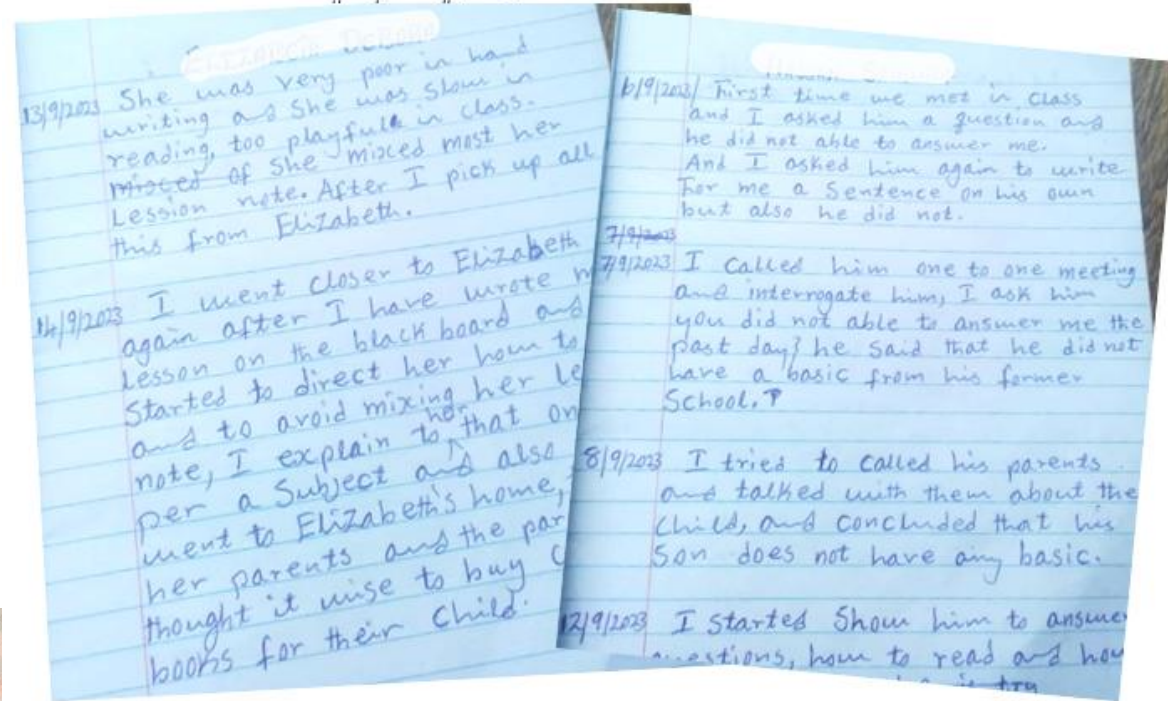 13/9/2023 She was very poor in hand
writing and She was Slow in
reading, too playfull in class.
mixced of She mixced most her
Lession note. After I pick up all
this from Elizabeth.
14/9/2023 I went closer to Elizabeth
again after I have wrote
Lesson on the black board and
Started to direct her how to
and to avoid mixing her
note, I explain to her that
per a Subject and also
went to Elizabeth's home,
her parents and the
thought it wise to buy
books for their Child.
6/9/2023 First time we met in Class
and I asked him a question and
he did not able to answer me.
And I asked him again to write
For me a Sentence on his own
but also he did not.
7/9/2023
7/9/2023 I Called him one to one meeting
and interrogate him, I ask him
you did not able to answer me the
past day? he Said that he did not
have a basic from his former
School.
8/9/2023 I tried to called his parents
and talked with them about the
Child, and Concluded that his
Son does not have any basic.
12/9/2023 I Started Show him to answer
questions, how to read and how